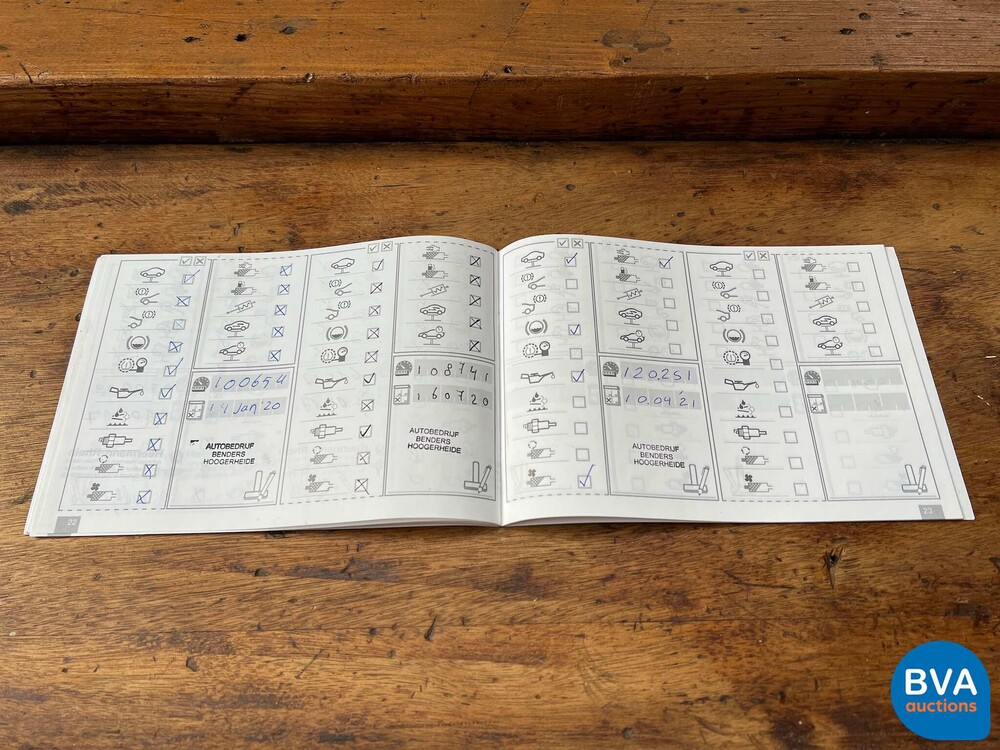 100654
14 Jan '20
AUTOBEDRIJF
BENDERS
HOOGERHEIDE
22
108741
160720
AUTOBEDRIJF
BENDERS
HOOGERHEIDE
120.251
10.04.'21
AUTOBEDRIJF
BENDERS
HOOGERHEIDE
23
BVA
auctions